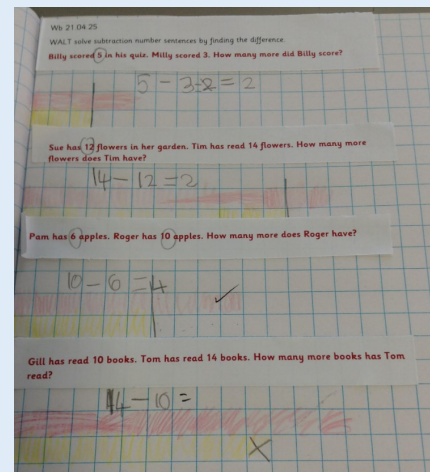 Wb 21.04.25
WALT solve subtraction number sentences by finding the difference.
Billy scored 5 in his quiz. Milly scored 3. How many more did Billy score?
5 - 3 = 2
Sue has 12 flowers in her garden. Tim has read 14 flowers. How many more
flowers does Tim have?
14 - 12 = 2
Pam has 6 apples. Roger has 10 apples. How many more does Roger have?
10 - 6 = 4
Gill has read 10 books. Tom has read 14 books. How many more books has Tom
read?
14 - 10 =